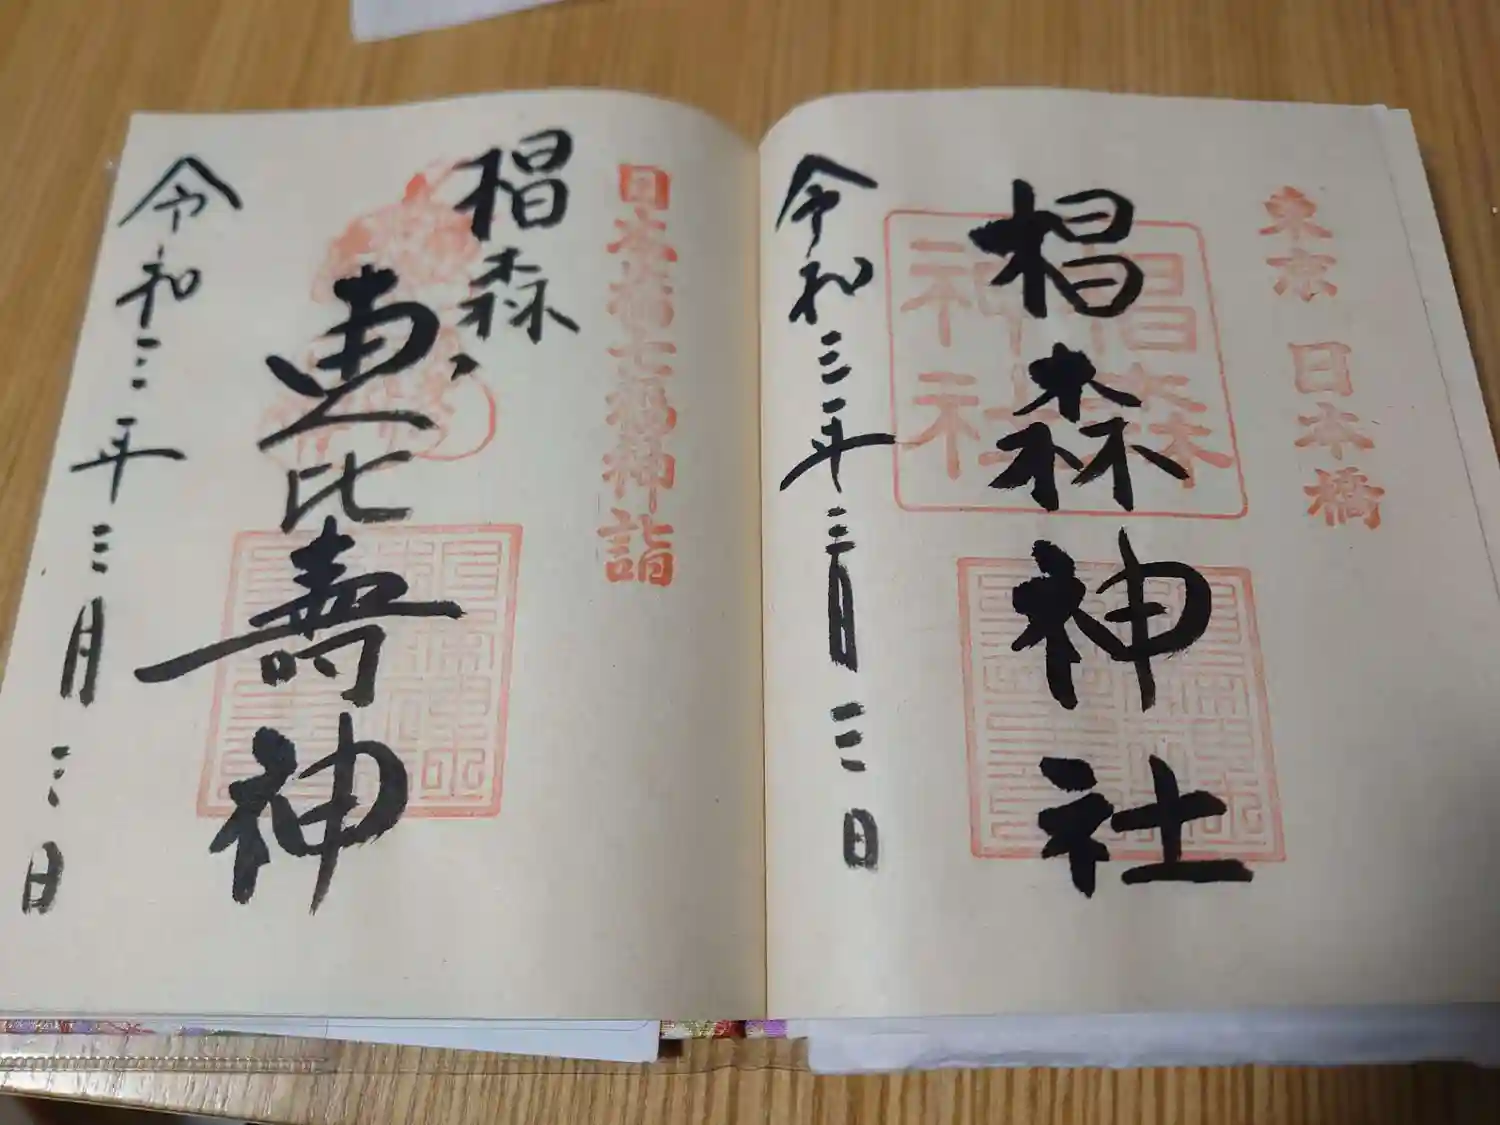 東京 日本橋
椙森神社
椙森
神社
令和三年三月三日
日本橋七福神詣
椙森
恵比壽神
令和三年三月三日